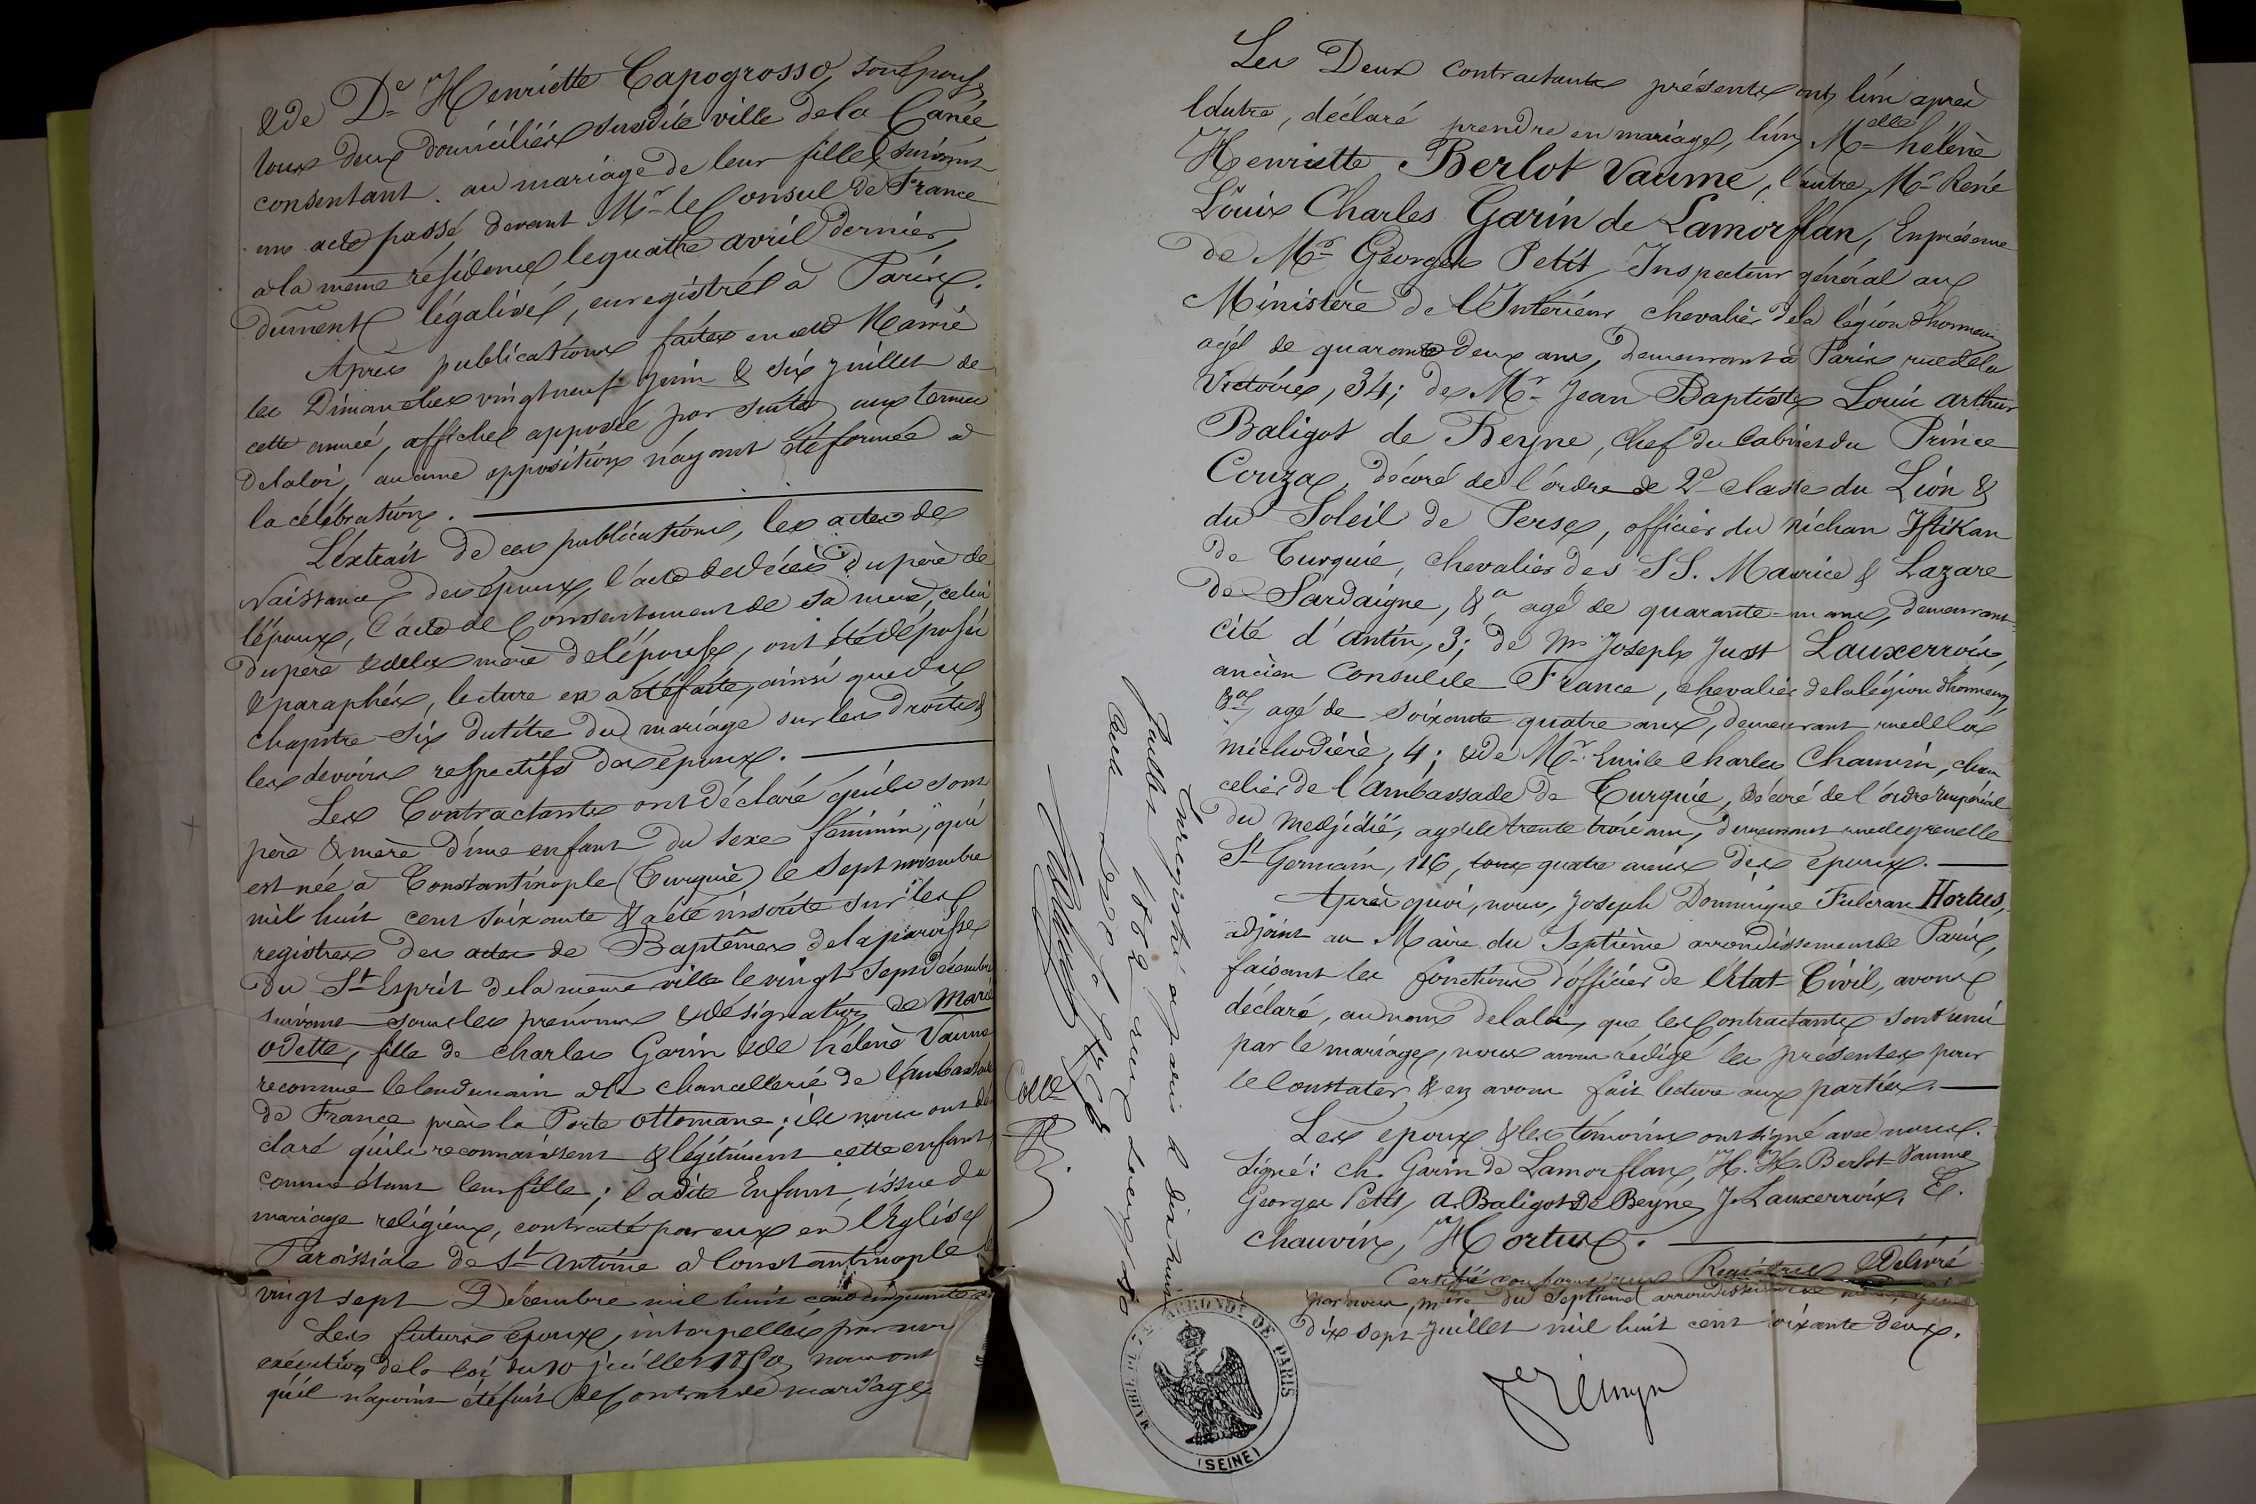 & de De Henriette Capogrosso, son épouse
tous deux domiciliés susdite ville de la Canée
consentant au mariage de leur fille suivant
un acte passé devant Mr le Consul de France
à la même résidence le quatre avril dernier,
dûment légalisé, enregistré à Paris.
Après publications faites en cette Mairie
les Dimanches vingt neuf Juin & six Juillet de
cette année, affiches apposée par suite aux termes
de la loi, aucune opposition n'ayant été formée à
la célébration.
L'extrait de ces publications, les actes de
Naissance des époux, l'acte de décès du père de
l'époux, l'acte de Consentement de sa mère, celui
du père & de la mère de l'épouse, ont été déposés
& paraphés, lecture en a été faite, ainsi que du
chapitre six du titre du mariage sur les droits &
les devoirs respectifs des époux.
Les Contractants ont déclaré qu'ils sont
père & mère d'une enfant du sexe féminin, qui
est née à Constantinople (Turquie) le sept novembre
mil huit cent soixante & a été inscrite sur les
registres des actes de Baptêmes de la paroisse
du St Esprit de la même ville le vingt sept décembre
suivant sous les prénoms & désignation de Marie
Odette, fille de Charles Garin & de hélène Vaume
reconnue le lendemain à la chancellerie de l'ambassade
de France près la Porte Ottomane; ils nous ont dé
claré qu'ils reconnaissent & légitiment cette enfant
comme étant leur fille; ladite Enfant issue du
mariage religieux, contracté par eux en l'Eglise
Paroissiale de St Antoine à Constantinople le
vingt sept Décembre mil huit cent cinquante
Les futurs époux, interpellés par nous
exécution de la loi du 10 juillet 1850, nous ont
qu'il n'a point été fait de Contrat de mariage
Les Deux contractants présents ont, l'un après
l'autre, déclaré prendre en mariage, l'un Melle hélène
Henriette Berlot Vaume, l'autre, Mr René
Louis Charles Garin de Lamorflan, En présence
de Mr Georges Petit, Inspecteur général au
Ministère de l'Intérieur chevalier de la légion d'honneur
agé de quarante deux ans, demeurant à Paris rue de la
Victoire, 34; de Mr Jean Baptiste Louis Arthur
Baligot de Beyne, Chef du Cabinet du Prince
Couza, décoré de l'ordre de 2e classe du Lion &
du Soleil de Perse, officier du Nichan Iftikan
de Turquie, chevalier des SS. Maurice & Lazare
de Sardaigne, &a, agé de quarante-un ans, demeurant
cité d'antin, 3; de Mr Joseph Just Lauxerrois,
ancien Consul de France, chevalier de la légion d'honneur,
&a, agé de soixante quatre ans, demeurant rue de la
michodière, 4; & de Mr Emile Charles Chauvin, chan
celier de l'Ambassade de Turquie, décoré de l'ordre impérial
du Medjidié, agé de trente trois ans, demeurant rue de grenelle
St Germain, 116, tous quatre amis des époux.
Après quoi, nous, Joseph Dominique Fulcran Hortus,
adjoint au Maire du Septième arrondissement de Paris,
faisant les fonctions d'officier de l'Etat Civil, avons
déclaré, au nom de la loi, que les Contractants sont unis
par le mariage, nous avons rédigé les présentes pour
le Constater & en avons fait lecture aux parties.
Les époux & les témoins ont signé avec nous.
Signé: Ch. Garin de Lamorflan, H. H. Berlot Vaume
Georges Petit, A. Baligot De Beyne, J. Lauxerrois, E.
Chauvin, Hortus.
Certifié conforme aux Registres & Délivré
par nous, maire du Septième arrondissement
dix sept Juillet mil huit cent soixante deux.
Enregistré à Paris le dix huit
Juillet 1862
MAIRIE DU 7E ARRONDT DE PARIS
(SEINE)